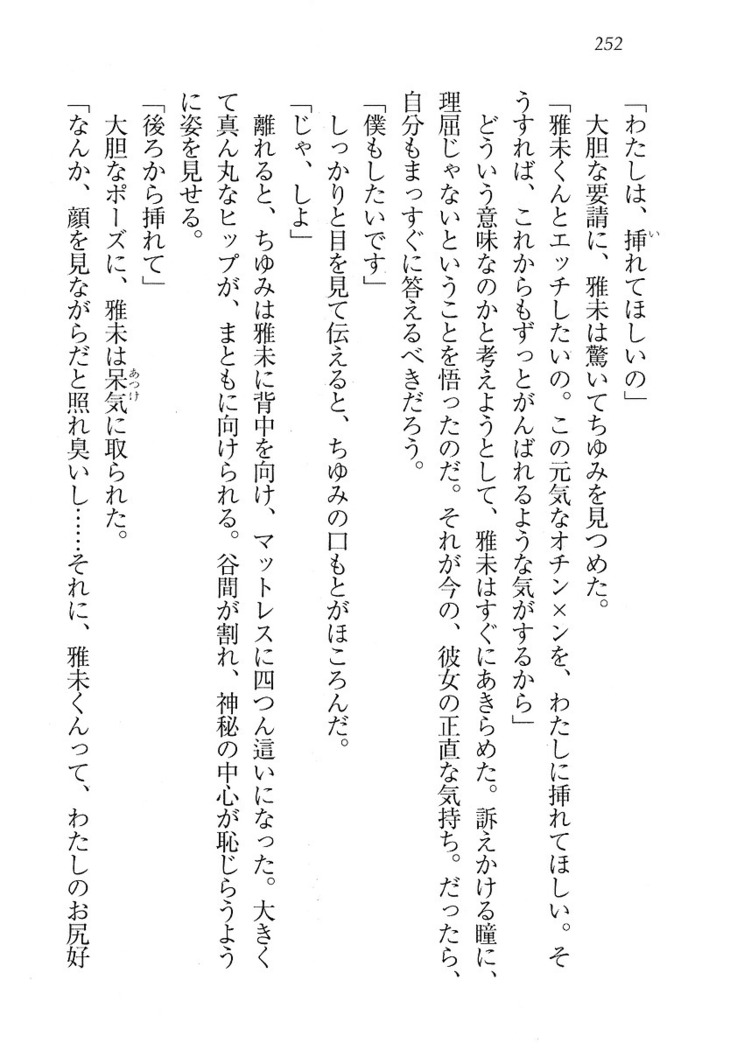 252
「わたしは、挿れてほしいの」
大胆な要請に、雅未は驚いてちゆみを見つめた。
「雅未くんとエッチしたいの。この元気なオチン×ンを、わたしに挿れてほしい。そ
うすれば、これからもずっとがんばれるような気がするから」
どういう意味なのかと考えようとして、雅未はすぐにあきらめた。訴えかける瞳に、
理屈じゃないということを悟ったのだ。それが今の、彼女の正直な気持ち。だったら、
自分もまっすぐに答えるべきだろう。
「僕もしたいです」
しっかりと目を見て伝えると、ちゆみの口もとがほころんだ。
「じゃ、しよ」
離れると、ちゆみは雅未に背中を向け、マットレスに四つん這いになった。大きく
て真ん丸なヒップが、まともに向けられる。谷間が割れ、神秘の中心が恥じらうよう
に姿を見せる。
「後ろから挿れて」
大胆なポーズに、雅未は呆気に取られた。
「なんか、顔を見ながらだと照れ臭いし……それに、雅未くんって、わたしのお尻好